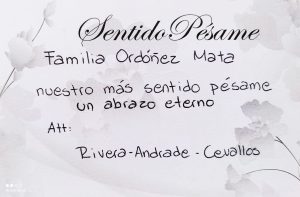 Sentido Pésame
Familia Ordóñez Mata
nuestro más sentido pésame
un abrazo eterno
Att:
Rivera-Andrade - Cevallos